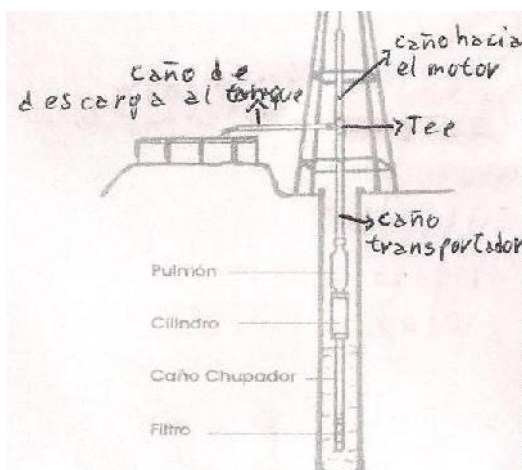 caño hacia
el motor
caño de
descarga al tanque
Tee
caño
transportador
Pulmón
Cilindro
Caño Chupador
Filtro